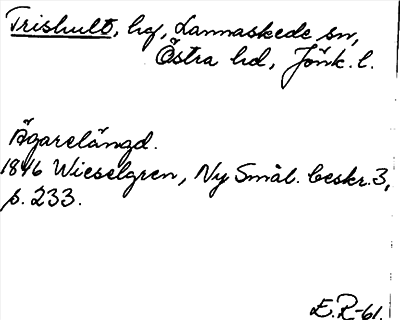 Trishult, hg, Lannaskede sn,
Östra hd, Jönk. l.
Ägarelängd.
1846 Wieselgren, Ny Smål. beskr. 3,
p. 233.
E.R-61.